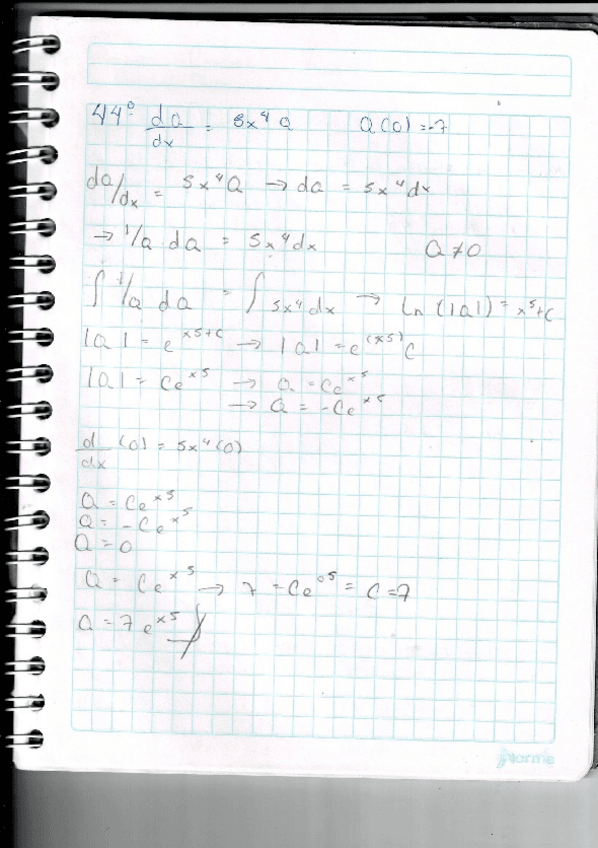 44° da/dx = 5x⁴a a(0) = -7
da/dx = 5x⁴a → da = 5x⁴dx
→ 1/a da = 5x⁴dx a ≠ 0
∫ 1/a da = ∫ 5x⁴dx → Ln (|a|) = x⁵+c
|a| = e^(x5+c) → |a| = e^(x5) c
|a| = ce^x5 → a = ce^x5
→ a = -ce^x5
d/dx (0) = 5x⁴(0)
a = ce^x5
a = -ce^x5
a = 0
a = ce^x5 → 7 = ce^05 = c = 7
a = 7e^x5
norma